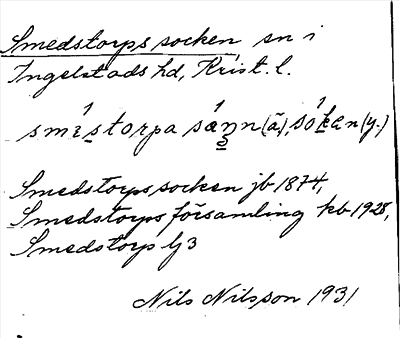 Smedstorps socken sn i
Ingelstads hd, Krist. l.
smistorpa sann (ä), sokan (y.)
Smedstorps socken jb 1874,
Smedstorps församling kb 1928,
Smedstorp lj 3
Nils Nilsson 1931